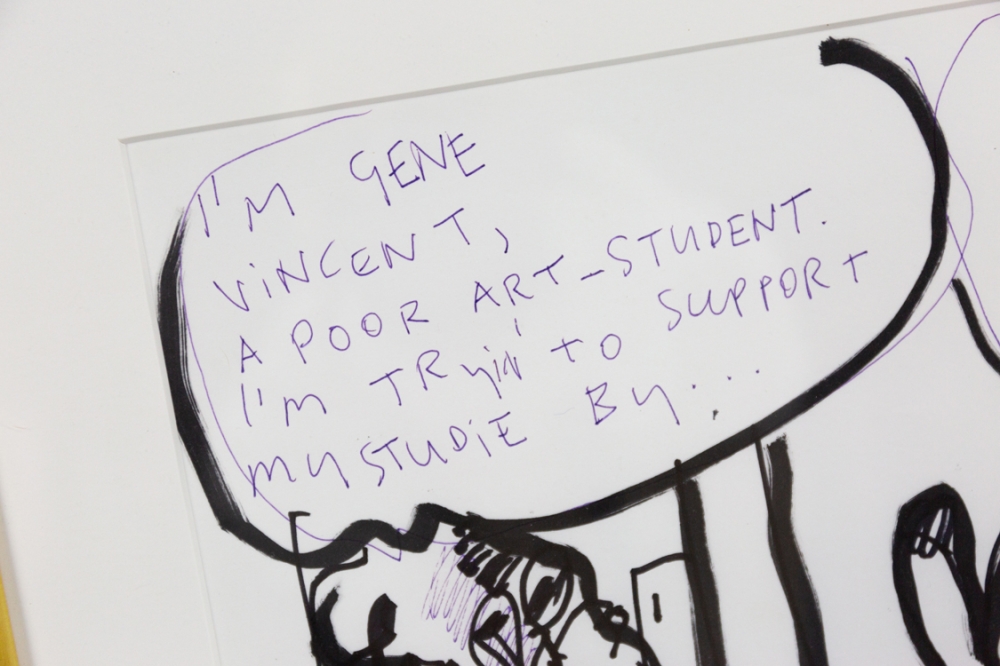 I'M GENE
VINCENT,
A POOR ART-STUDENT.
I'M TRYIN' TO SUPPORT
MY STUDIE BY...